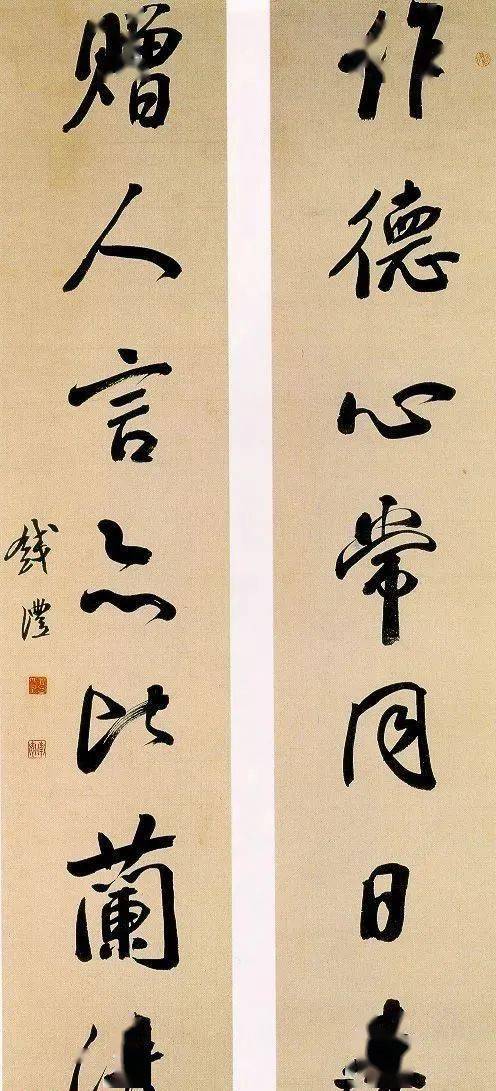 作德心常同日
贈人言亦比蘭
錢灃